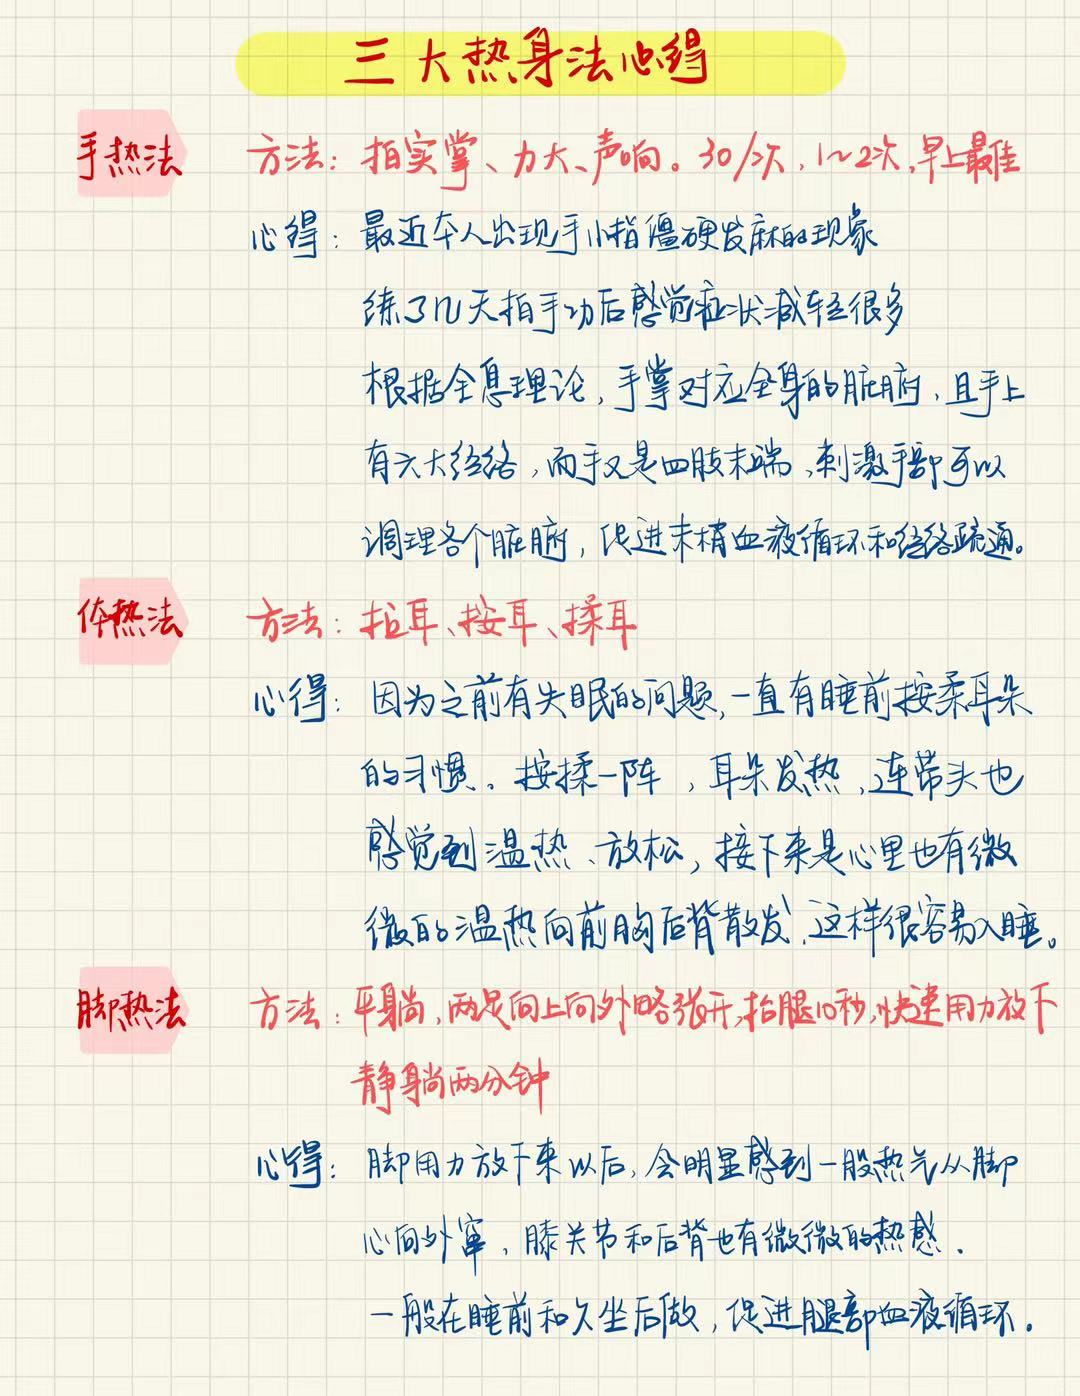 三大热身法心得
手热法 方法：拍实掌、力大、声响。30/次，1~2次，早上最佳
心得：最近本人出现手小指僵硬发麻的现象
练了几天拍手功后感觉症状减轻很多
根据全息理论，手掌对应全身的脏腑，且手上
有六大经络，而手又是四肢末端，刺激手部可以
调理各个脏腑，促进末梢血液循环和经络疏通。
体热法 方法：拉耳、按耳、揉耳
心得：因为之前有失眠的问题，一直有睡前按柔耳朵
的习惯。按揉一阵，耳朵发热，连带头也
感觉到温热、放松，接下来是心里也有微
微的温热向前胸后背散发，这样很容易入睡。
脚热法 方法：平躺，两足向上向外略张开，抬腿10秒，快速用力放下
静躺两分钟
心得：脚用力放下来以后，会明显感到一股热气从脚
心向外窜，膝关节和后背也有微微的热感．
一般在睡前和久坐后做，促进腿部血液循环．